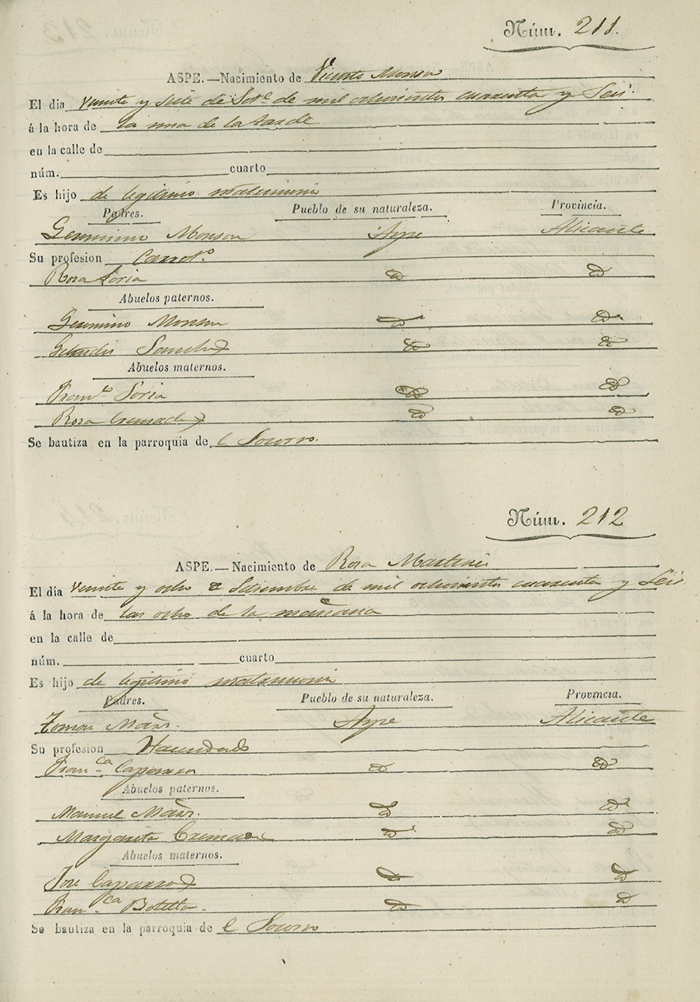 Núm. 211.
ASPE.—Nacimiento de Vicente Monzon
El dia veinte y siete de Set.e de mil ochocientos cuarenta y Seis.
á la hora de la una de la tarde
en la calle de
núm. cuarto
Es hijo de legitimo matrimonio
Padres. Pueblo de su naturaleza. Provincia.
Geronimo Monzon Aspe Alicante
Su profesion Carret.o
Rosa Soria D D
Abuelos paternos.
Geronimo Monzon D D
Sanchez D D
Abuelos maternos.
Fran.co Soria D D
Rosa Cremades D D
Se bautiza en la parroquia de l Socorro.
Núm. 212
ASPE.—Nacimiento de Rosa Martinez
El día veinte y ocho de Setiembre de mil ochocientos cuarenta y Seis
á la hora de las ocho de la mañana
en la calle de
núm. cuarto
Es hijo de legitimo matrimonio
Padres. Pueblo de su naturaleza. Provincia.
Tomas Mãrz. Aspe Alicante
Su profesion Hacendado
Fran.ca Caparros D D
Abuelos paternos.
Manuel Mãrz. D D
Margarita Cremades D D
Abuelos maternos.
Jose Caparros D D
Fran.ca Botella. D D
Se bautiza en la parroquia de l Socorro